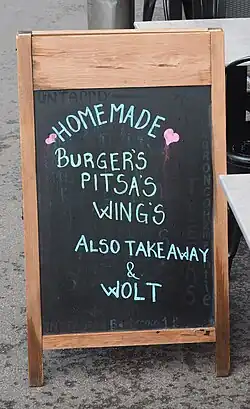 HOMEMADE
BURGER'S
PITSA'S
WING'S
ALSO TAKEAWAY
&
WOLT